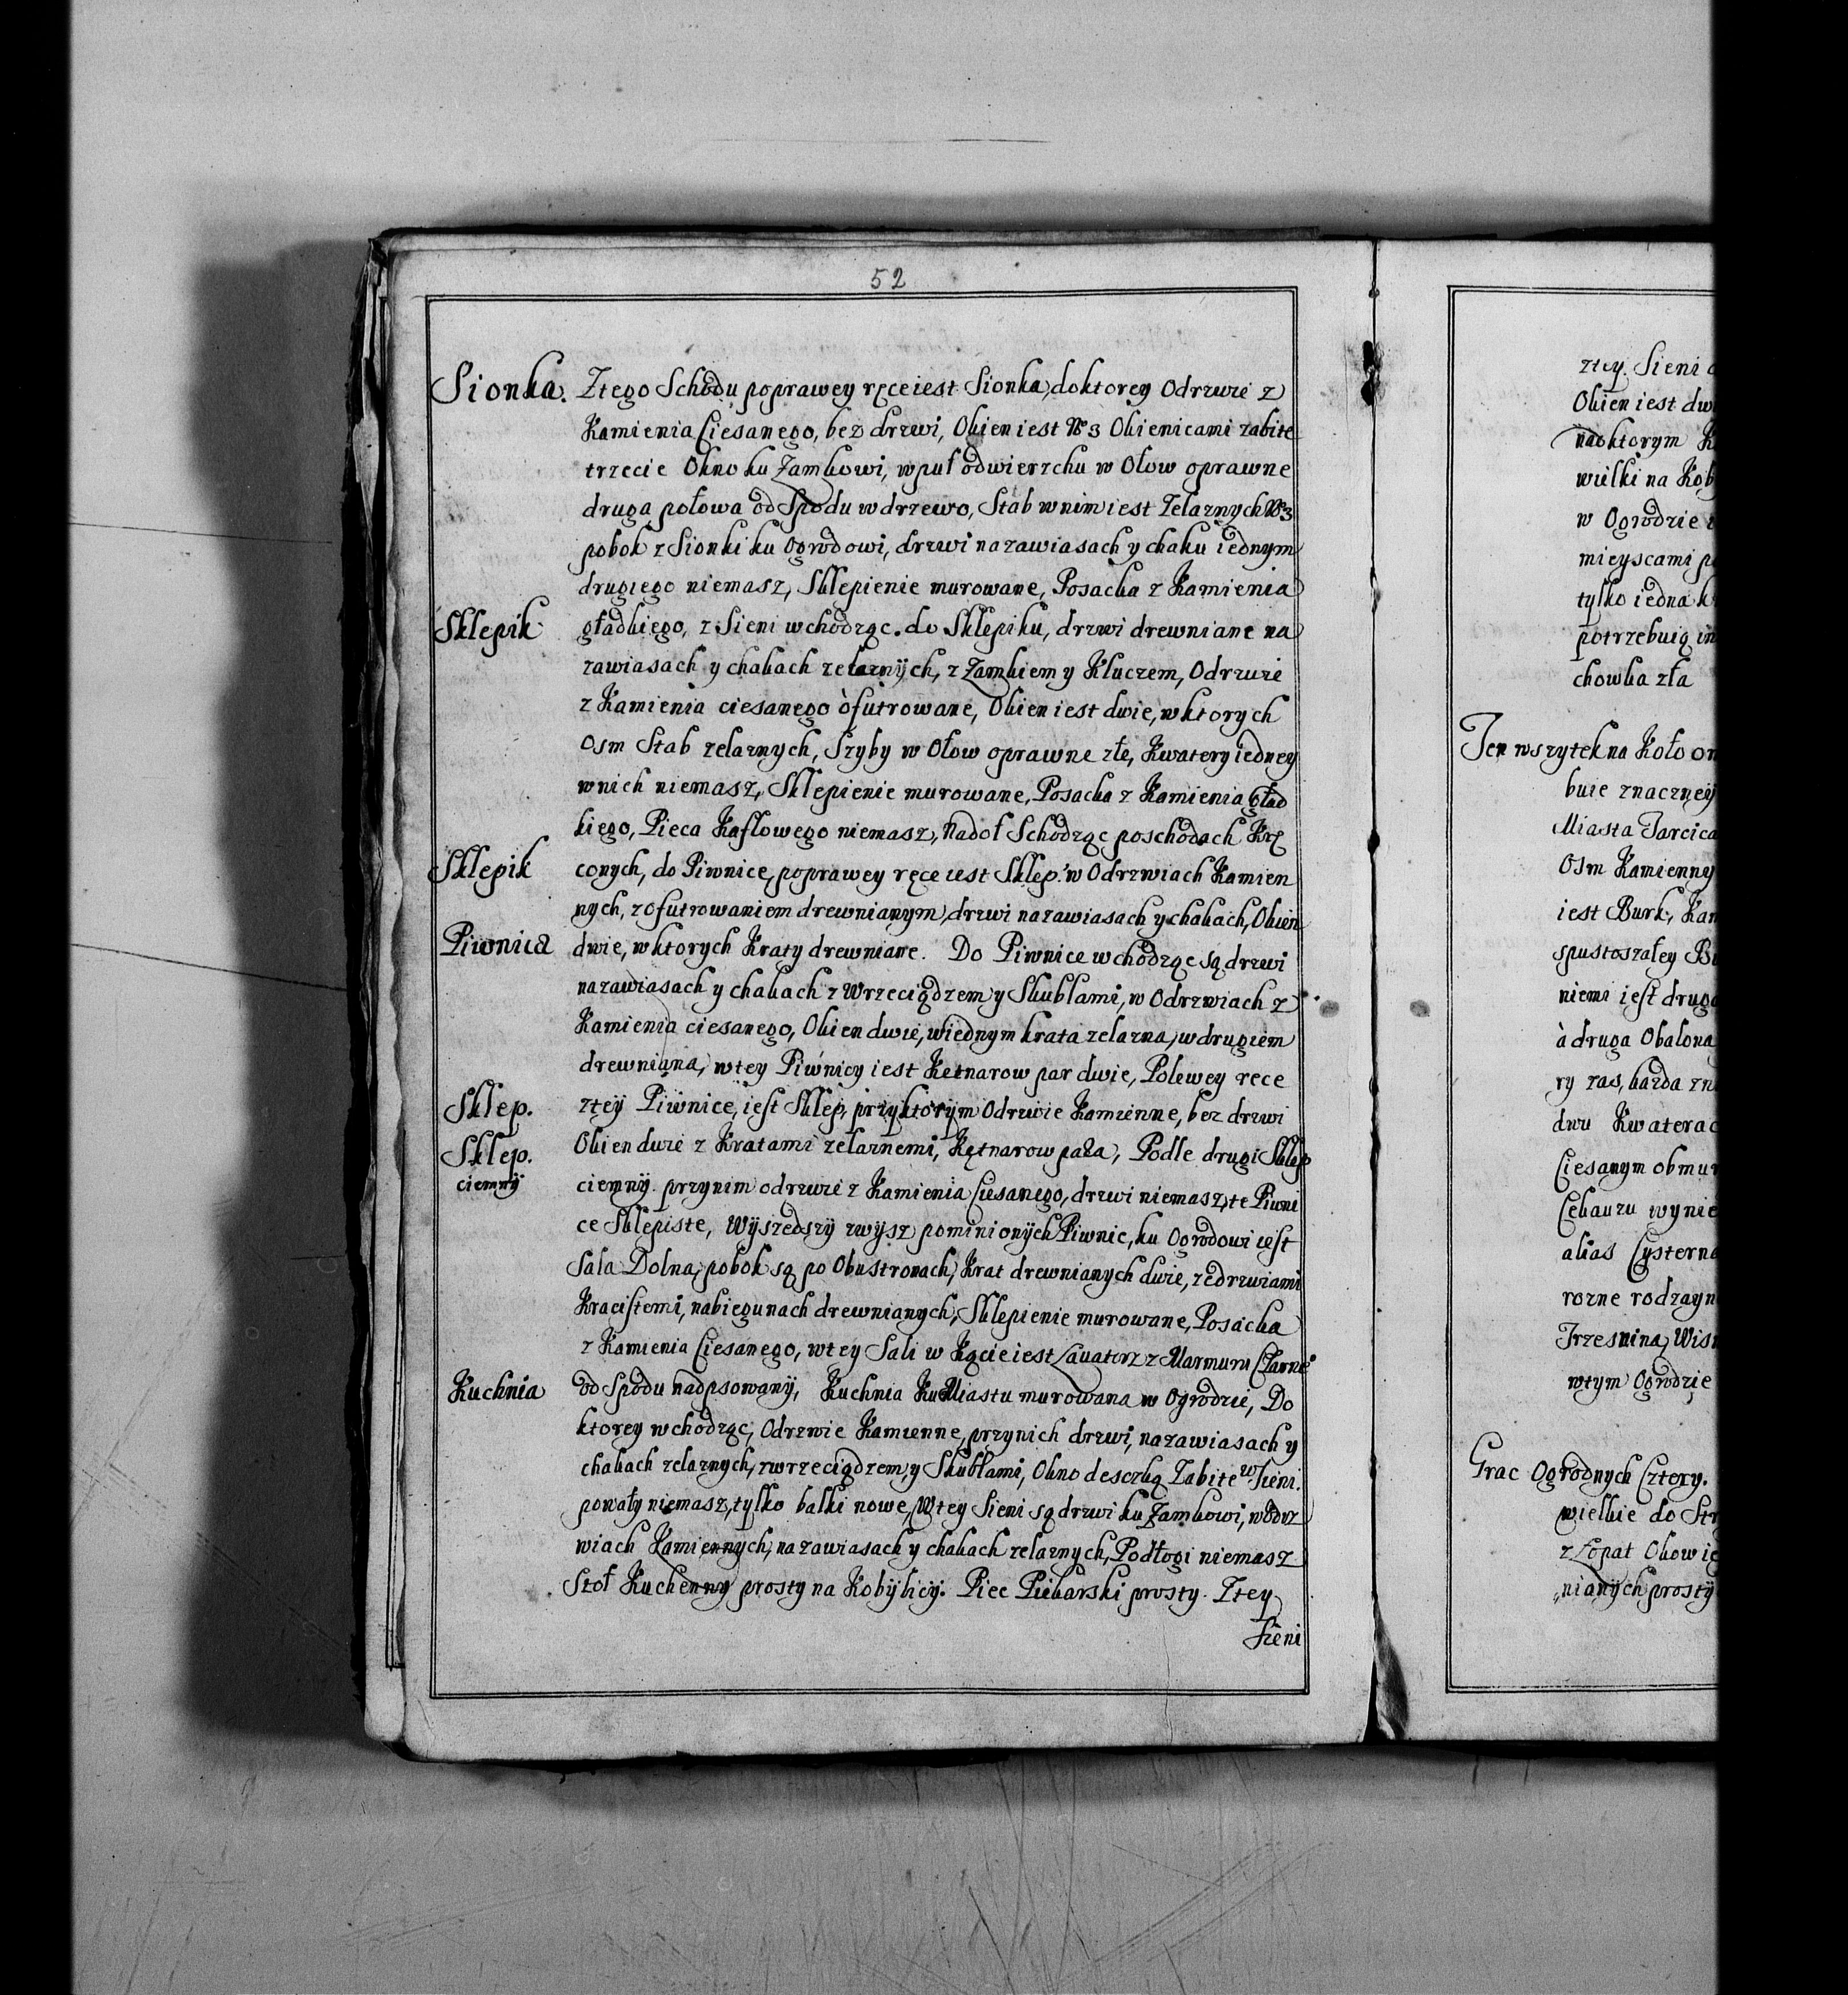 52
Sionka. Ztego Schodu poprawey ręce iest Sionka, doktorey Odrzwi z
Kamienia Ciesanego, bez drzwi, Okien iest No 3 Okienicami zabite
trzecie Okno ku Zamkowi, wpuł odwierzchu w Ołow oprawne
druga połowa od Spodu w drzewo, Stab wnim iest Zelaznych No 3
pobok z Sionki ku Ogrodowi, drzwi na zawiasach y chaku iednym
drugiego niemasz, Sklepienie murowane, Posacka z Kamienia
Sklepik gładkiego, z Sieni wchodząc. do Sklepiku, drzwi drewniane na
zawiasach y chakach zelaznych, z Zamkiem y Kluczem, Odrzwi
z Kamienia ciesanego òfutrowane, Okien iest dwie, wktorych
Osm Stab zelaznych, Szyby w Ołow oprawne złe, Kwatery iedney
wnich niemasz, Sklepienie murowane, Posacka z Kamienia gład
kiego, Pieca Kaflowego niemasz, Nadoł Schodząc poschodach Krę
Sklepik conych, do Piwnice, poprawey ręce iest Sklep. w Odrzwiach Kamien
nych, zofutrowaniem drewnianym, drzwi nazawiasach ychakach, Okien
Piwnica dwie, wktorych Kraty drewniane. Do Piwnice wchodząc są drzwi
nazawiasach y chakach z Wrzeciądzem y Skublami, w Odrzwiach z
Kamienia ciesanego, Okien dwie, wiednym krata zelazna, w drugiem
drewniana, wtey Piwnicy iest Kętnarow par dwie, Polewey ręce
Sklep. ztey Piwnice, iest Sklep, przyktorym Odrzwie Kamienne, bez drzwi
Sklep. Okien dwie z Kratami zelaznemi, Kętnarow pała, Podle drugi Sklep
ciemny ciemny. przynim odrzwi z Kamienia Ciesanego, drzwi niemasz, te Piwni
ce Sklepiste, Wyszedszy zwysz pominionych Piwnic, ku Ogrodowi iest
Sala Dolna, pobok są po Obustronach, Krat drewnianych dwie, zedrzwiami
Kracistemi, nabiegunach drewnianych, Sklepienie murowane, Posacka
z Kamienia Ciesanego, wtey Sali w Kącie iest Lauatorz z Marmuru Czarne
Kuchnia od Spodu nadpsowany, Kuchnia Ku Miastu murowana w Ogrodzie, Do
ktorey wchodząc, Odrzwie Kamienne, przynich drzwi, nazawiasach y
chakach zelaznych, zwrzeciądzem, y Skublami, Okno desczką Zabite w Sieni.
powały niemasz, tylko balki nowe, Wtey Sieni są drzwi ku Zamkowi, wodrz
wiach Kamiennych, na zawiasach y chakach zelaznych, Podłogi niemasz
Stoł Kuchenny prosty na Kobylicy. Piec Piekarski prosty. Ztey
Sieni
ztey. Sieni
Okien iest dw
nadktorym K
wielki na Kob
w Ogrodzie
mieyscami p
tylko iedna k
potrzebuią in
chowka zła
Ten wszytek na Koło
buie znaczney
Miasta Tarcica
Osm Kamienny
iest Burk, Kam
spustoszałey B
niemi iest drug
à druga Obalona
ry zas, bazda zn
dwu Kwaterac
Ciesanym obmur
Cebauzu wynie
alias Cysterna
rozne rodzayn
Trzesnina, Wisn
wtym Ogrodzie
Grac Ogrodnych Cztery.
wielkie do Str
z Łopat Okowi
nianych prosty